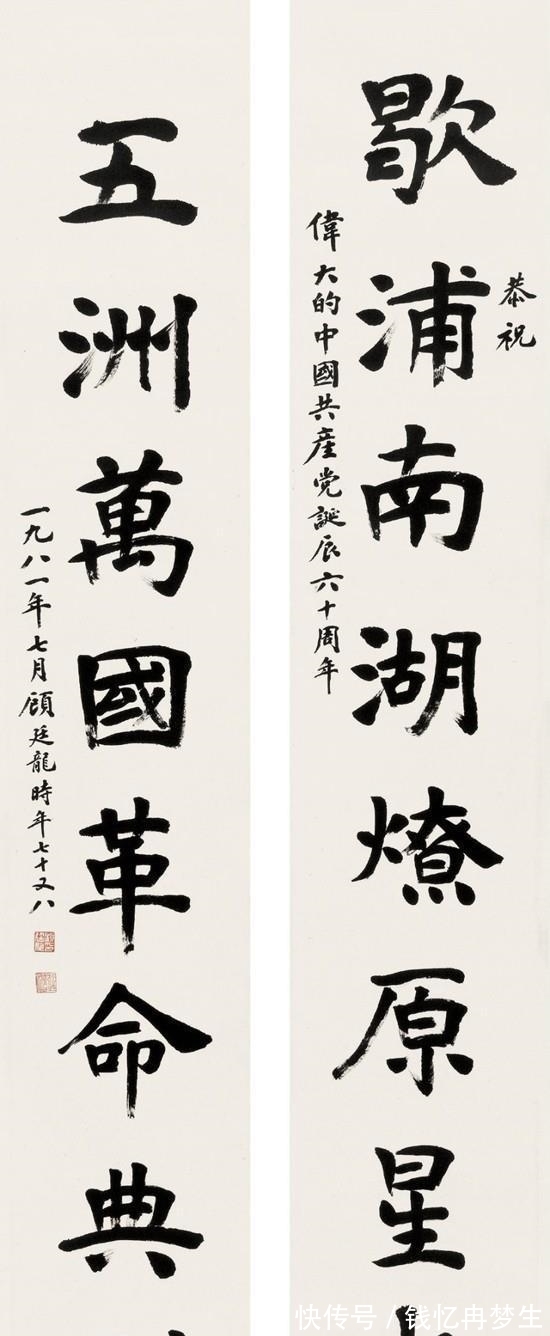 恭祝
歇浦南湖燎原星
偉大的中國共産党誕辰六十周年
五洲萬國革命典
一九八一年七月顧廷龍時年七十又八
快传号 / 钱忆冉梦生